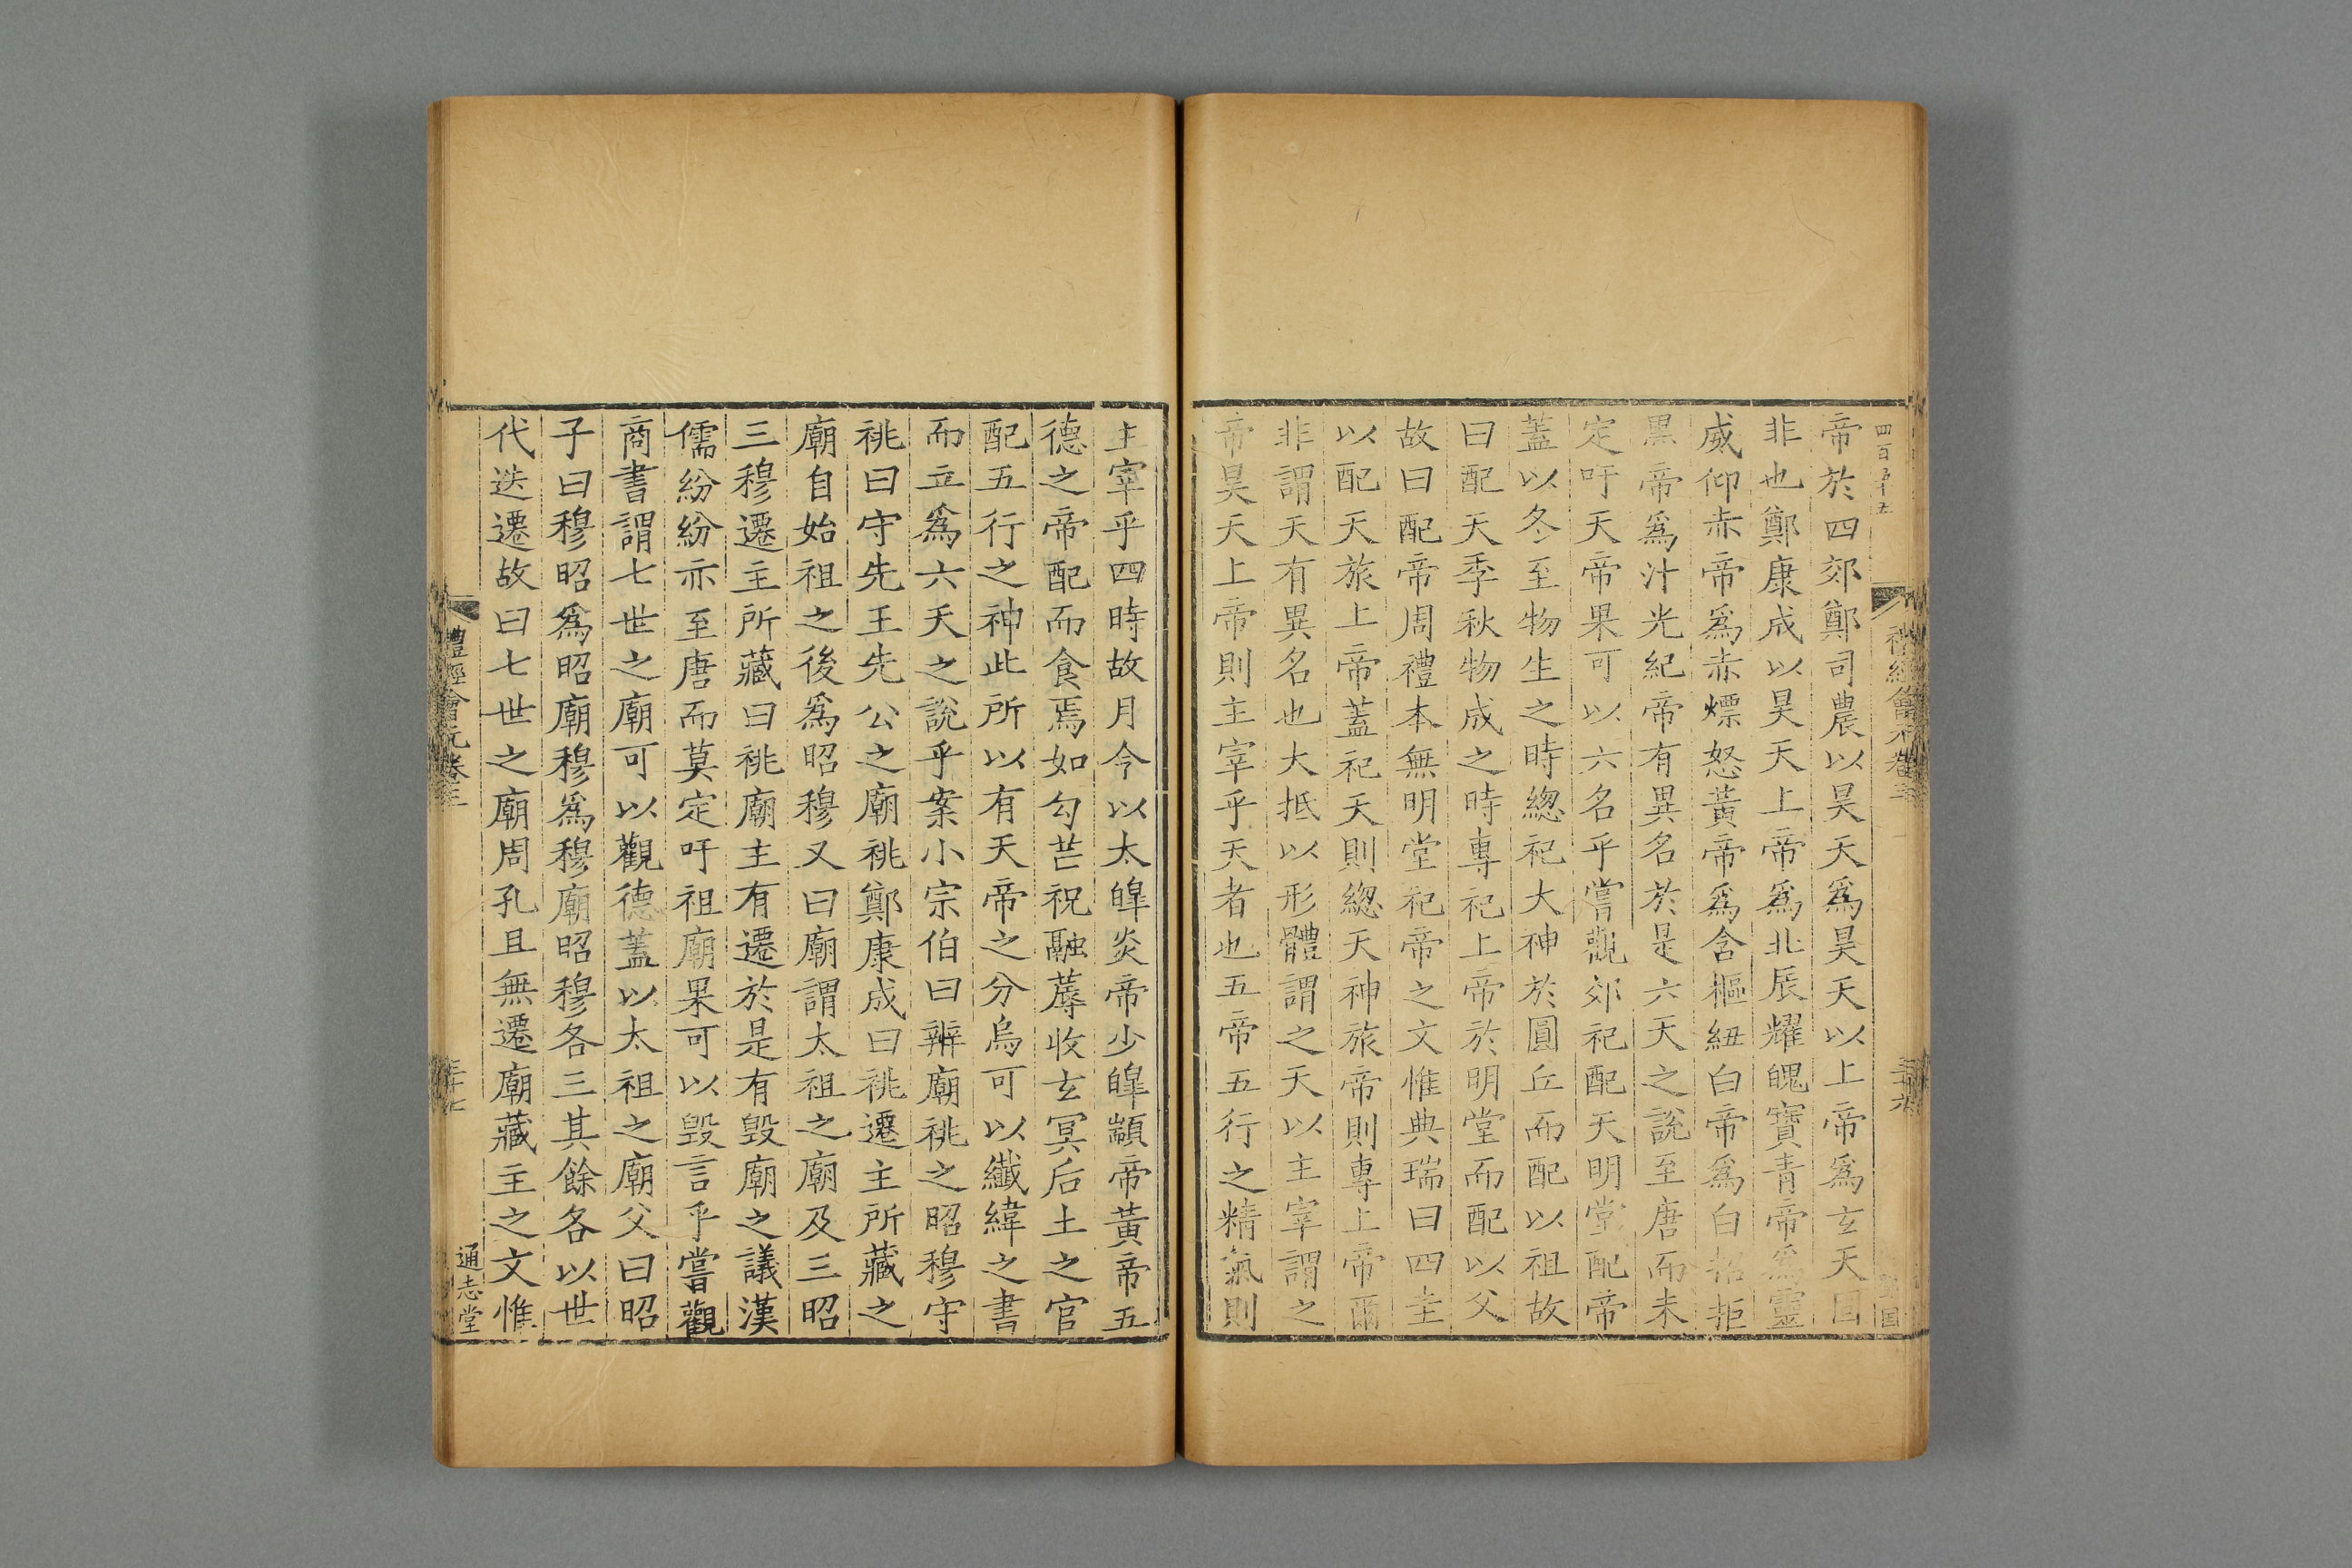 四百五十五
禮經會元卷三
帝於四郊鄭司農以昊天爲昊天以上帝爲玄天固
非也鄭康成以昊天上帝爲北辰耀魄寶青帝爲靈
威仰赤帝爲赤熛怒黃帝爲含樞紐白帝爲白招拒
黑帝爲汁光紀帝有異名於是六天之說至唐而未
定吁天帝果可以六名乎嘗觀郊祀配天明堂配帝
蓋以冬至物生之時總祀大神於圓丘而配以祖故
曰配天季秋物成之時專祀上帝於明堂而配以父
故曰配帝周禮本無明堂祀帝之文惟典瑞曰四圭
以配天旅上帝蓋祀天則總天神旅帝則專上帝爾
非謂天有異名也大抵以形體謂之天以主宰謂之
帝昊天上帝則主宰乎天者也五帝五行之精氣則
主宰乎四時故月令以太皥炎帝少皥顓帝黃帝五
德之帝配而食焉如勾芒祝融蓐收玄冥后土之官
配五行之神此所以有天帝之分烏可以纖緯之書
而立爲六天之說乎案小宗伯曰辨廟祧之昭穆守
祧曰守先王先公之廟祧鄭康成曰祧遷主所藏之
廟自始祖之後爲昭穆又曰廟謂太祖之廟及三昭
三穆遷主所藏曰祧廟主有遷於是有毀廟之議漢
儒紛紛亦至唐而莫定吁祖廟果可以毀言乎嘗觀
商書謂七世之廟可以觀德蓋以太祖之廟父曰昭
子曰穆昭爲昭廟穆爲穆廟昭穆各三其餘各以世
代迭遷故曰七世之廟周孔且無遷廟藏主之文惟
禮經會元卷三
三十七
通志堂